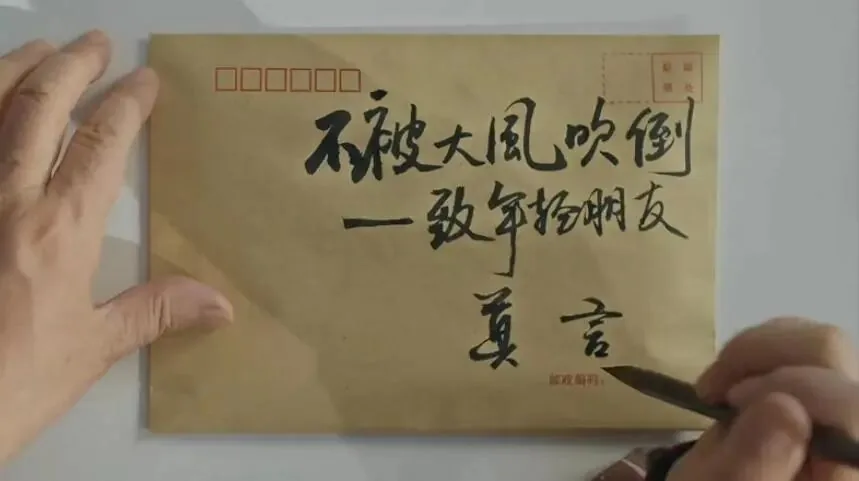 不被大風吹倒
—致年轻朋友
莫言
邮政编码: